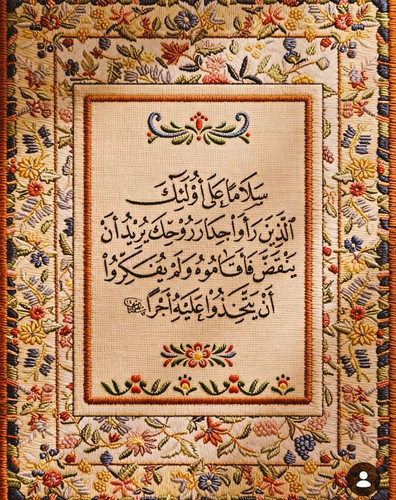 سَلَامًا عَلَى أُولَئِكَ
الَّذِينَ رَأَوا جِدَارَ رُوحِكَ يُرِيدُ أَن
يَنْقَضَّ فَأَقَامُوهُ وَلَمْ يُفَكِّرُوا
أَنْ يَتَّخِذُوا عَلَيْهِ أَجْرًا